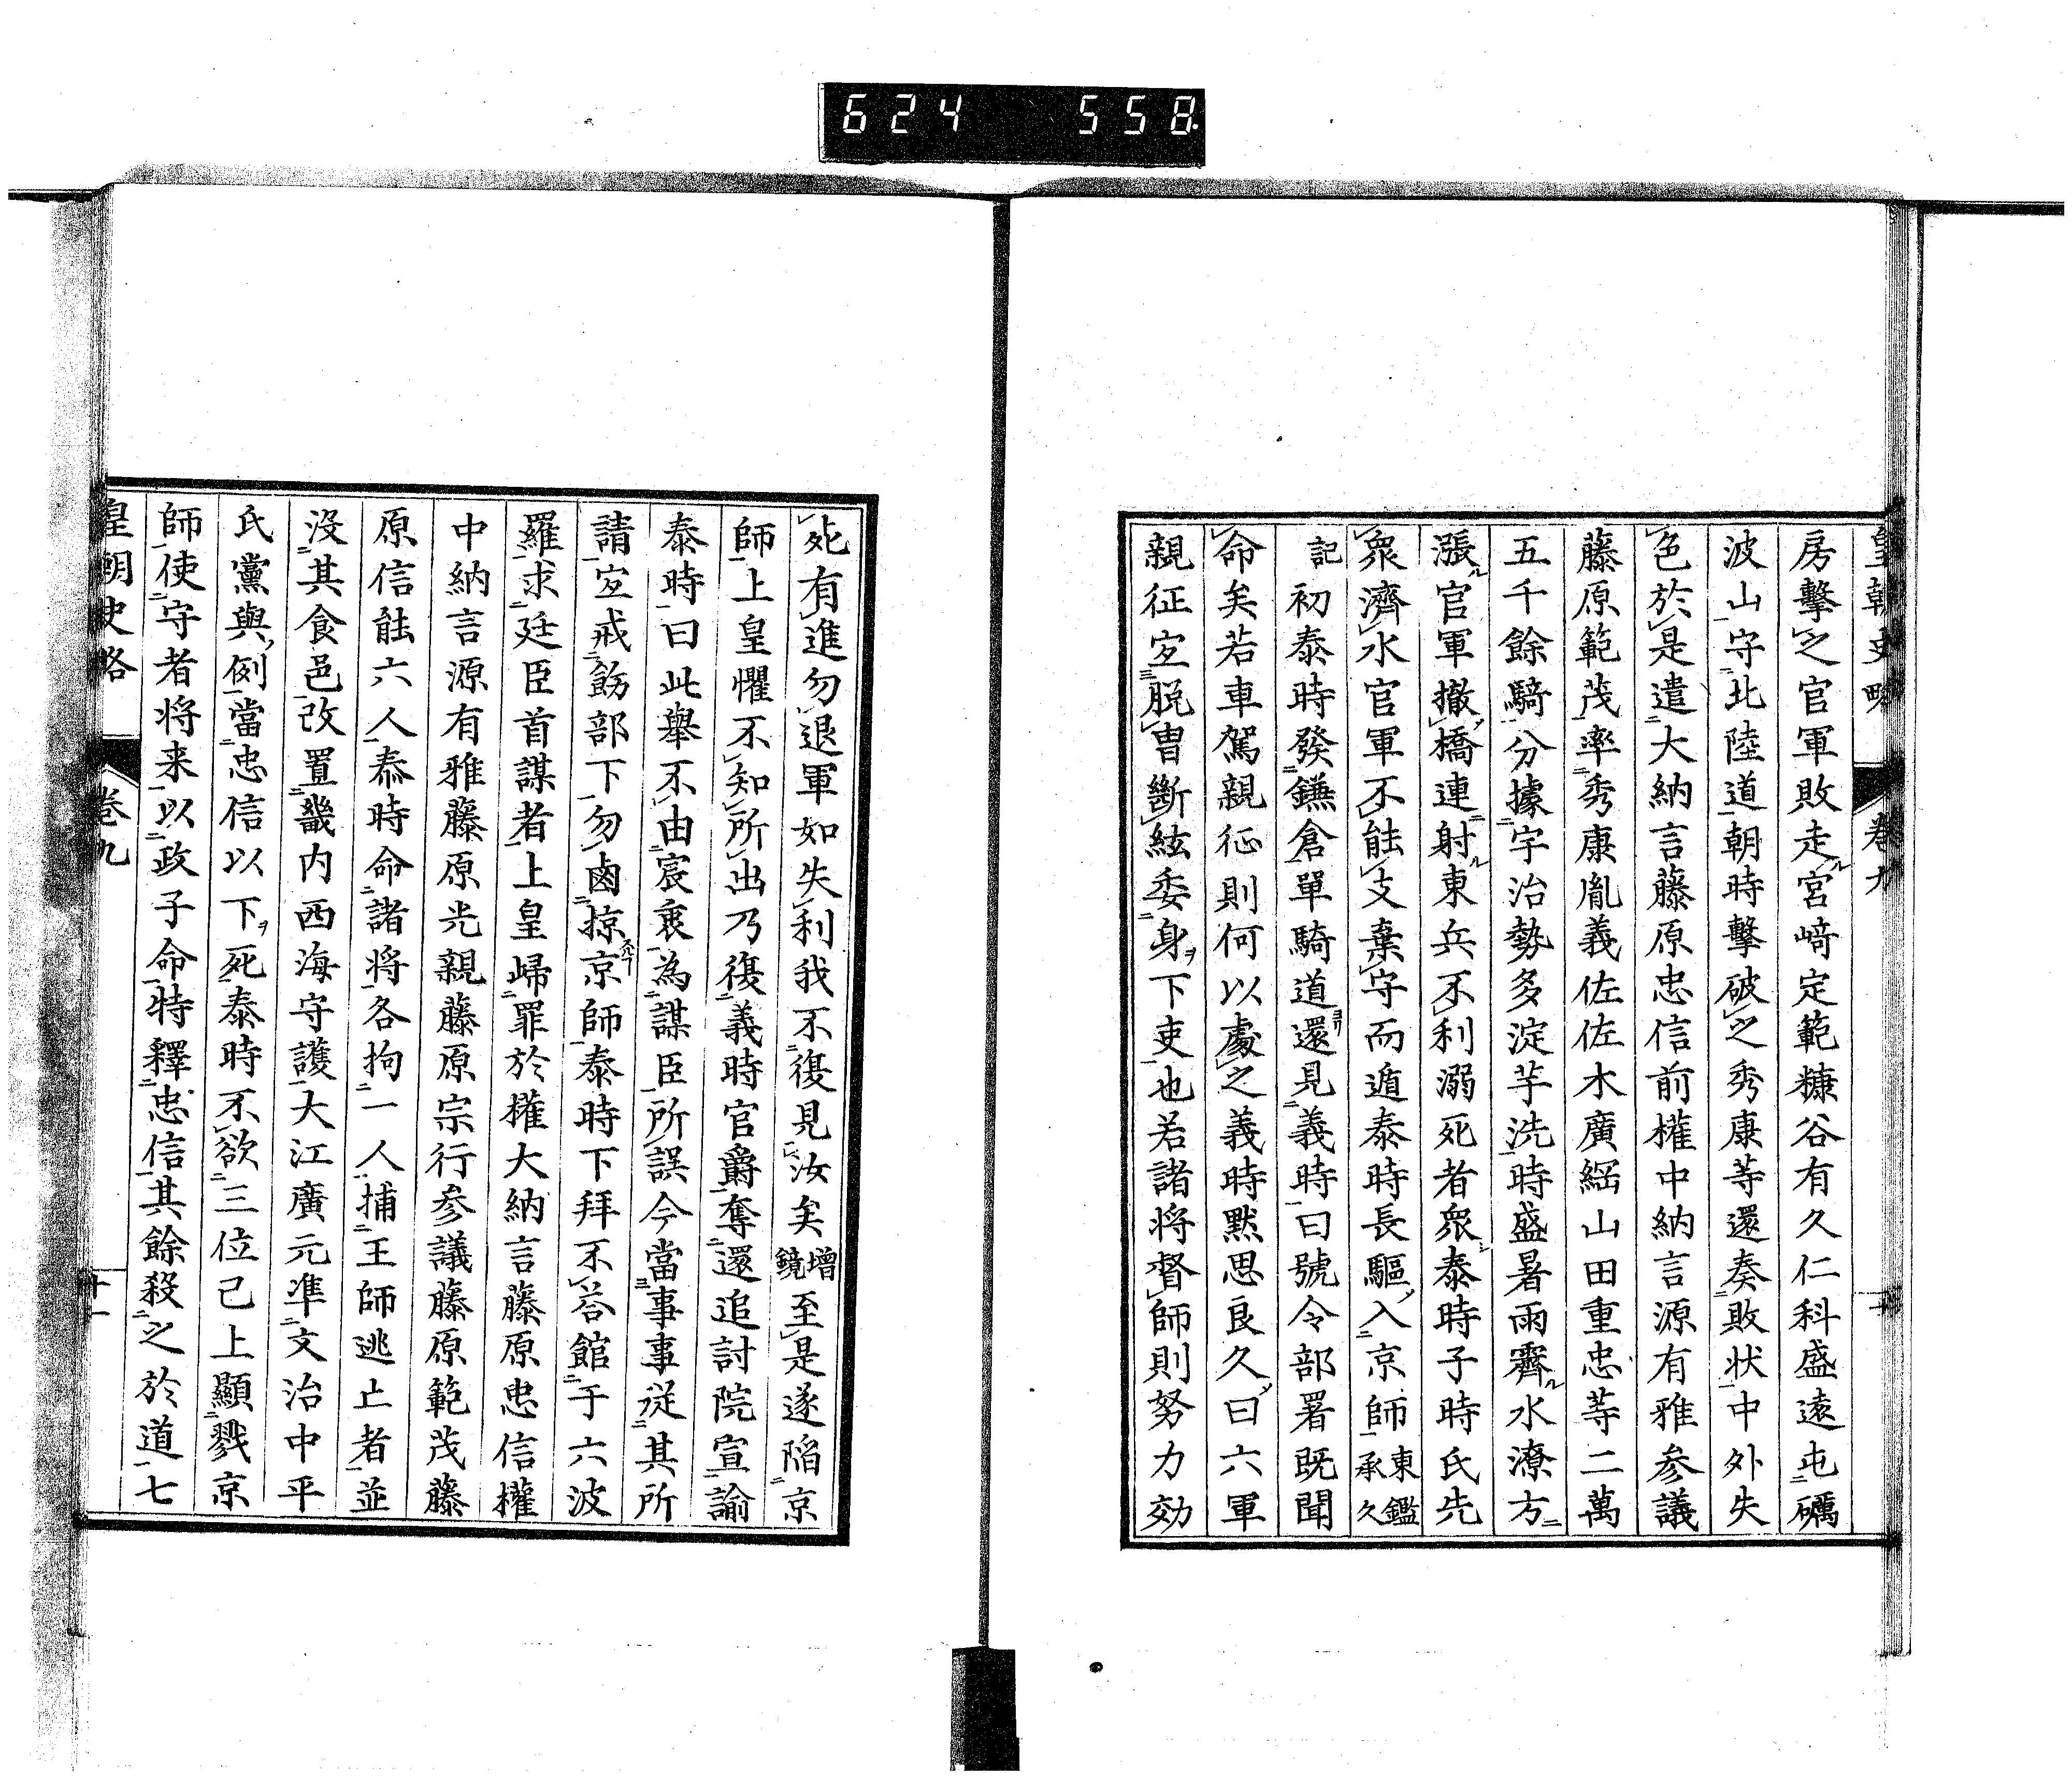 624 558
皇朝史略 卷九
房擊之官軍敗走宮﨑定範糠谷有久仁科盛遠屯礪
波山守北陸道朝時擊破之秀康等還奏敗狀中外失
色於是遣大納言藤原忠信前權中納言源有雅参議
藤原範茂率秀康胤義佐佐木廣綱山田重忠等二萬
五千餘騎分據宇治勢多淀芋洗時盛暑雨霽水潦方
漲官軍撤橋連射東兵不利溺死者衆泰時子時氏先
衆濟水官軍不能支棄守而遁泰時長驅入京師東鑑承久
記初泰時發鎌倉單騎道還見義時曰號令部署既聞
命矣若車駕親征則何以處之義時默思良久曰六軍
親征宜脱胄斷絃委身下吏也若諸将督師則努力効
死有進勿退軍如失利我不復見汝矣增鏡至是遂陷京
師上皇懼不知所出乃復義時官爵奪還追討院宣諭
泰時曰此擧不由宸衷為謀臣所誤今當事事從其所
請宜戒飭部下勿鹵掠京師泰時下拜不荅館于六波
羅求廷臣首謀者上皇歸罪於權大納言藤原忠信權
中納言源有雅藤原光親藤原宗行参議藤原範茂藤
原信能六人泰時命諸将各拘一人捕王師逃亡者並
沒其食邑改置畿内西海守護大江廣元準文治中平
氏黨與例當忠信以下死泰時不欲三位已上顯戮京
師使守者将来以政子命特釋忠信其餘殺之於道七
皇朝史略 卷九 十一